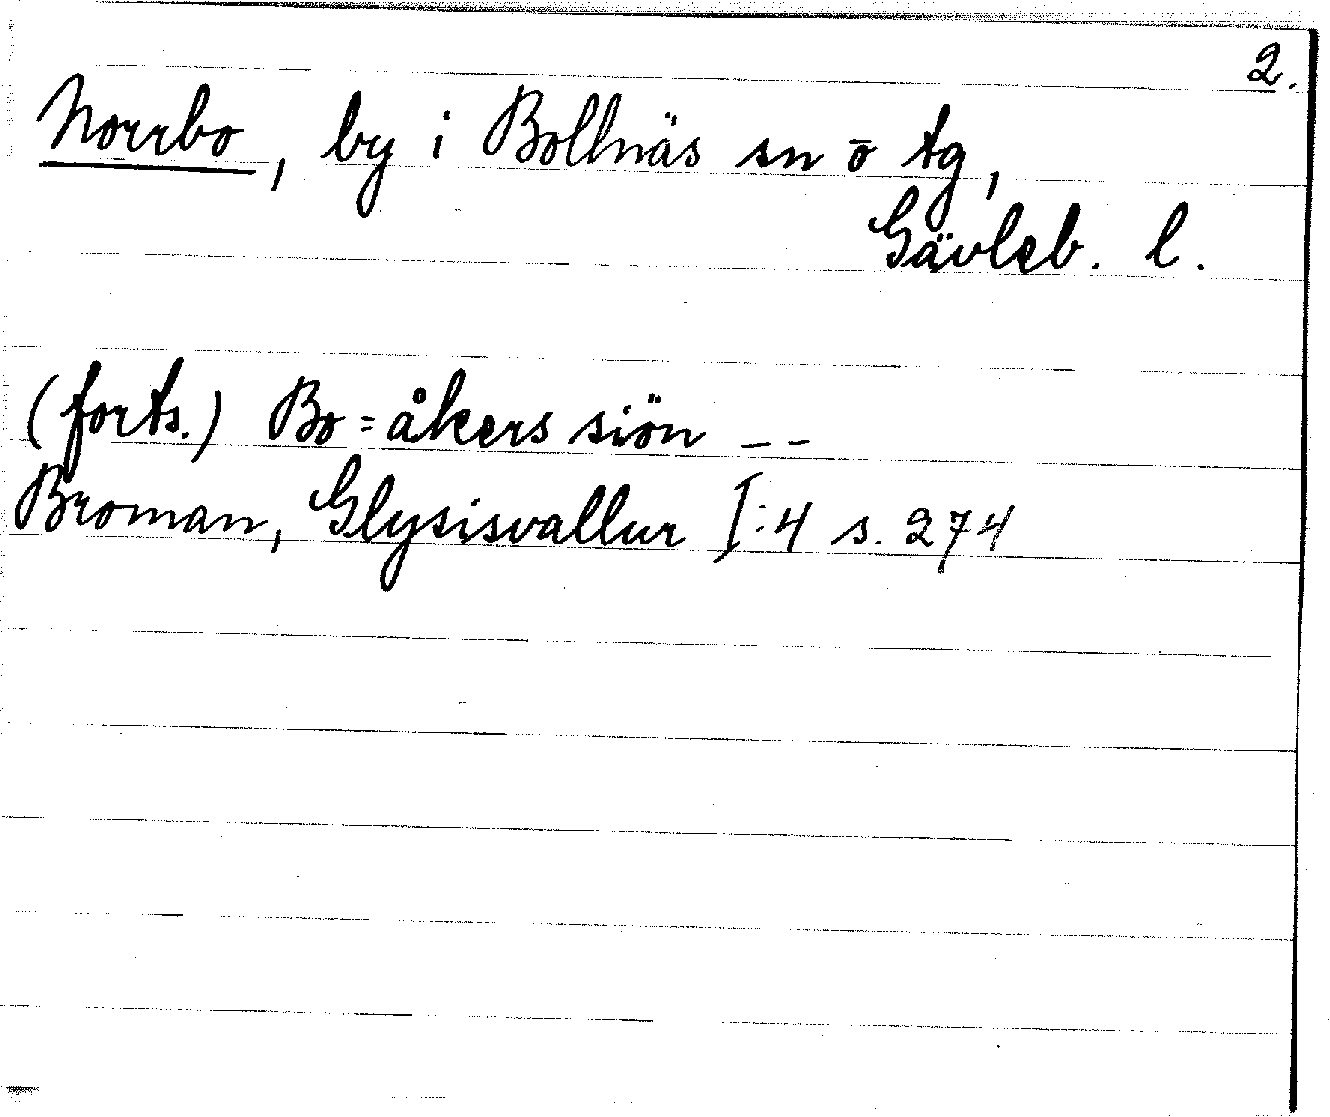 2.
Norrbo, by i Bollnäs sn o tg,
Gävleb. l.
(forts.) Bo=åkers siön --
Broman, Glysisvallur I:4 s. 274